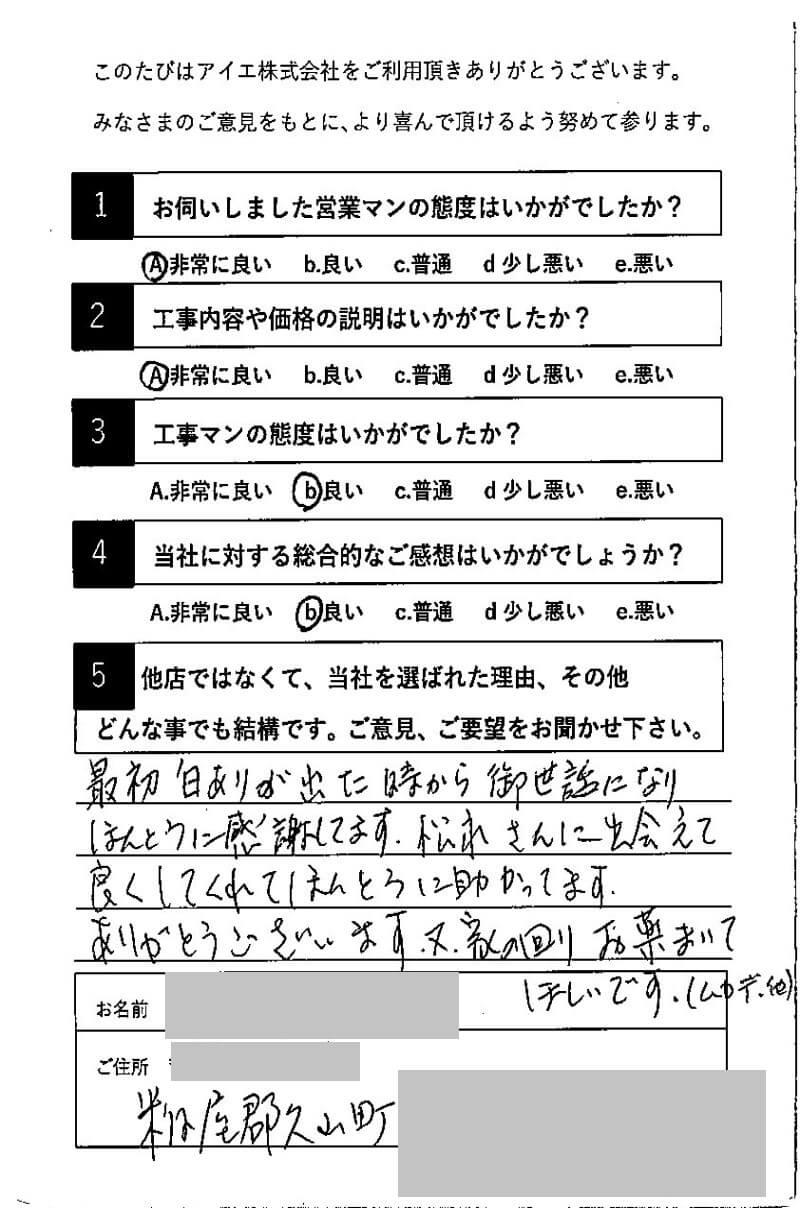 このたびはアイエ株式会社をご利用頂きありがとうございます。
みなさまのご意見をもとに、より喜んで頂けるよう努めて参ります。
1 お伺いしました営業マンの態度はいかがでしたか？
A非常に良い b.良い c.普通 d 少し悪い e.悪い
2 工事内容や価格の説明はいかがでしたか？
A非常に良い b.良い c.普通 d 少し悪い e.悪い
3 工事マンの態度はいかがでしたか？
A.非常に良い b良い c.普通 d 少し悪い e.悪い
4 当社に対する総合的なご感想はいかがでしょうか？
A.非常に良い b良い c.普通 d 少し悪い e.悪い
5 他店ではなくて、当社を選ばれた理由、その他
どんな事でも結構です。ご意見、ご要望をお聞かせ下さい。
最初白ありが出た時から御世話になり
ほんとうに感謝してます.松永さんに出会えて
良くしてくれてほんとうに助かってます.
ありがとうございます.又.家の回りお薬まいて
ほしいです.(ムカデ.他)
お名前
ご住所
粕屋郡久山町